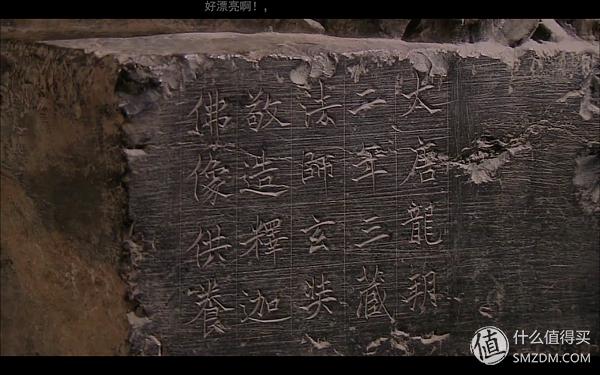 好漂亮啊！,
大唐龍朔
二年三藏
法師玄奘
敬造釋迦
佛像供養
值 什么值得买
SMZDM.COM